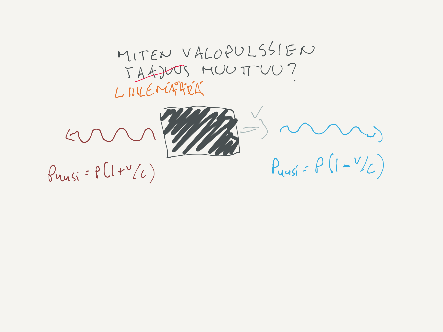 MITEN VALOPULSSIEN
TAAJUUS MUUTTUU?
LIIKEMÄÄRÄ
V
Puusi = P(1+v/c)
Puusi = P(1-v/c)